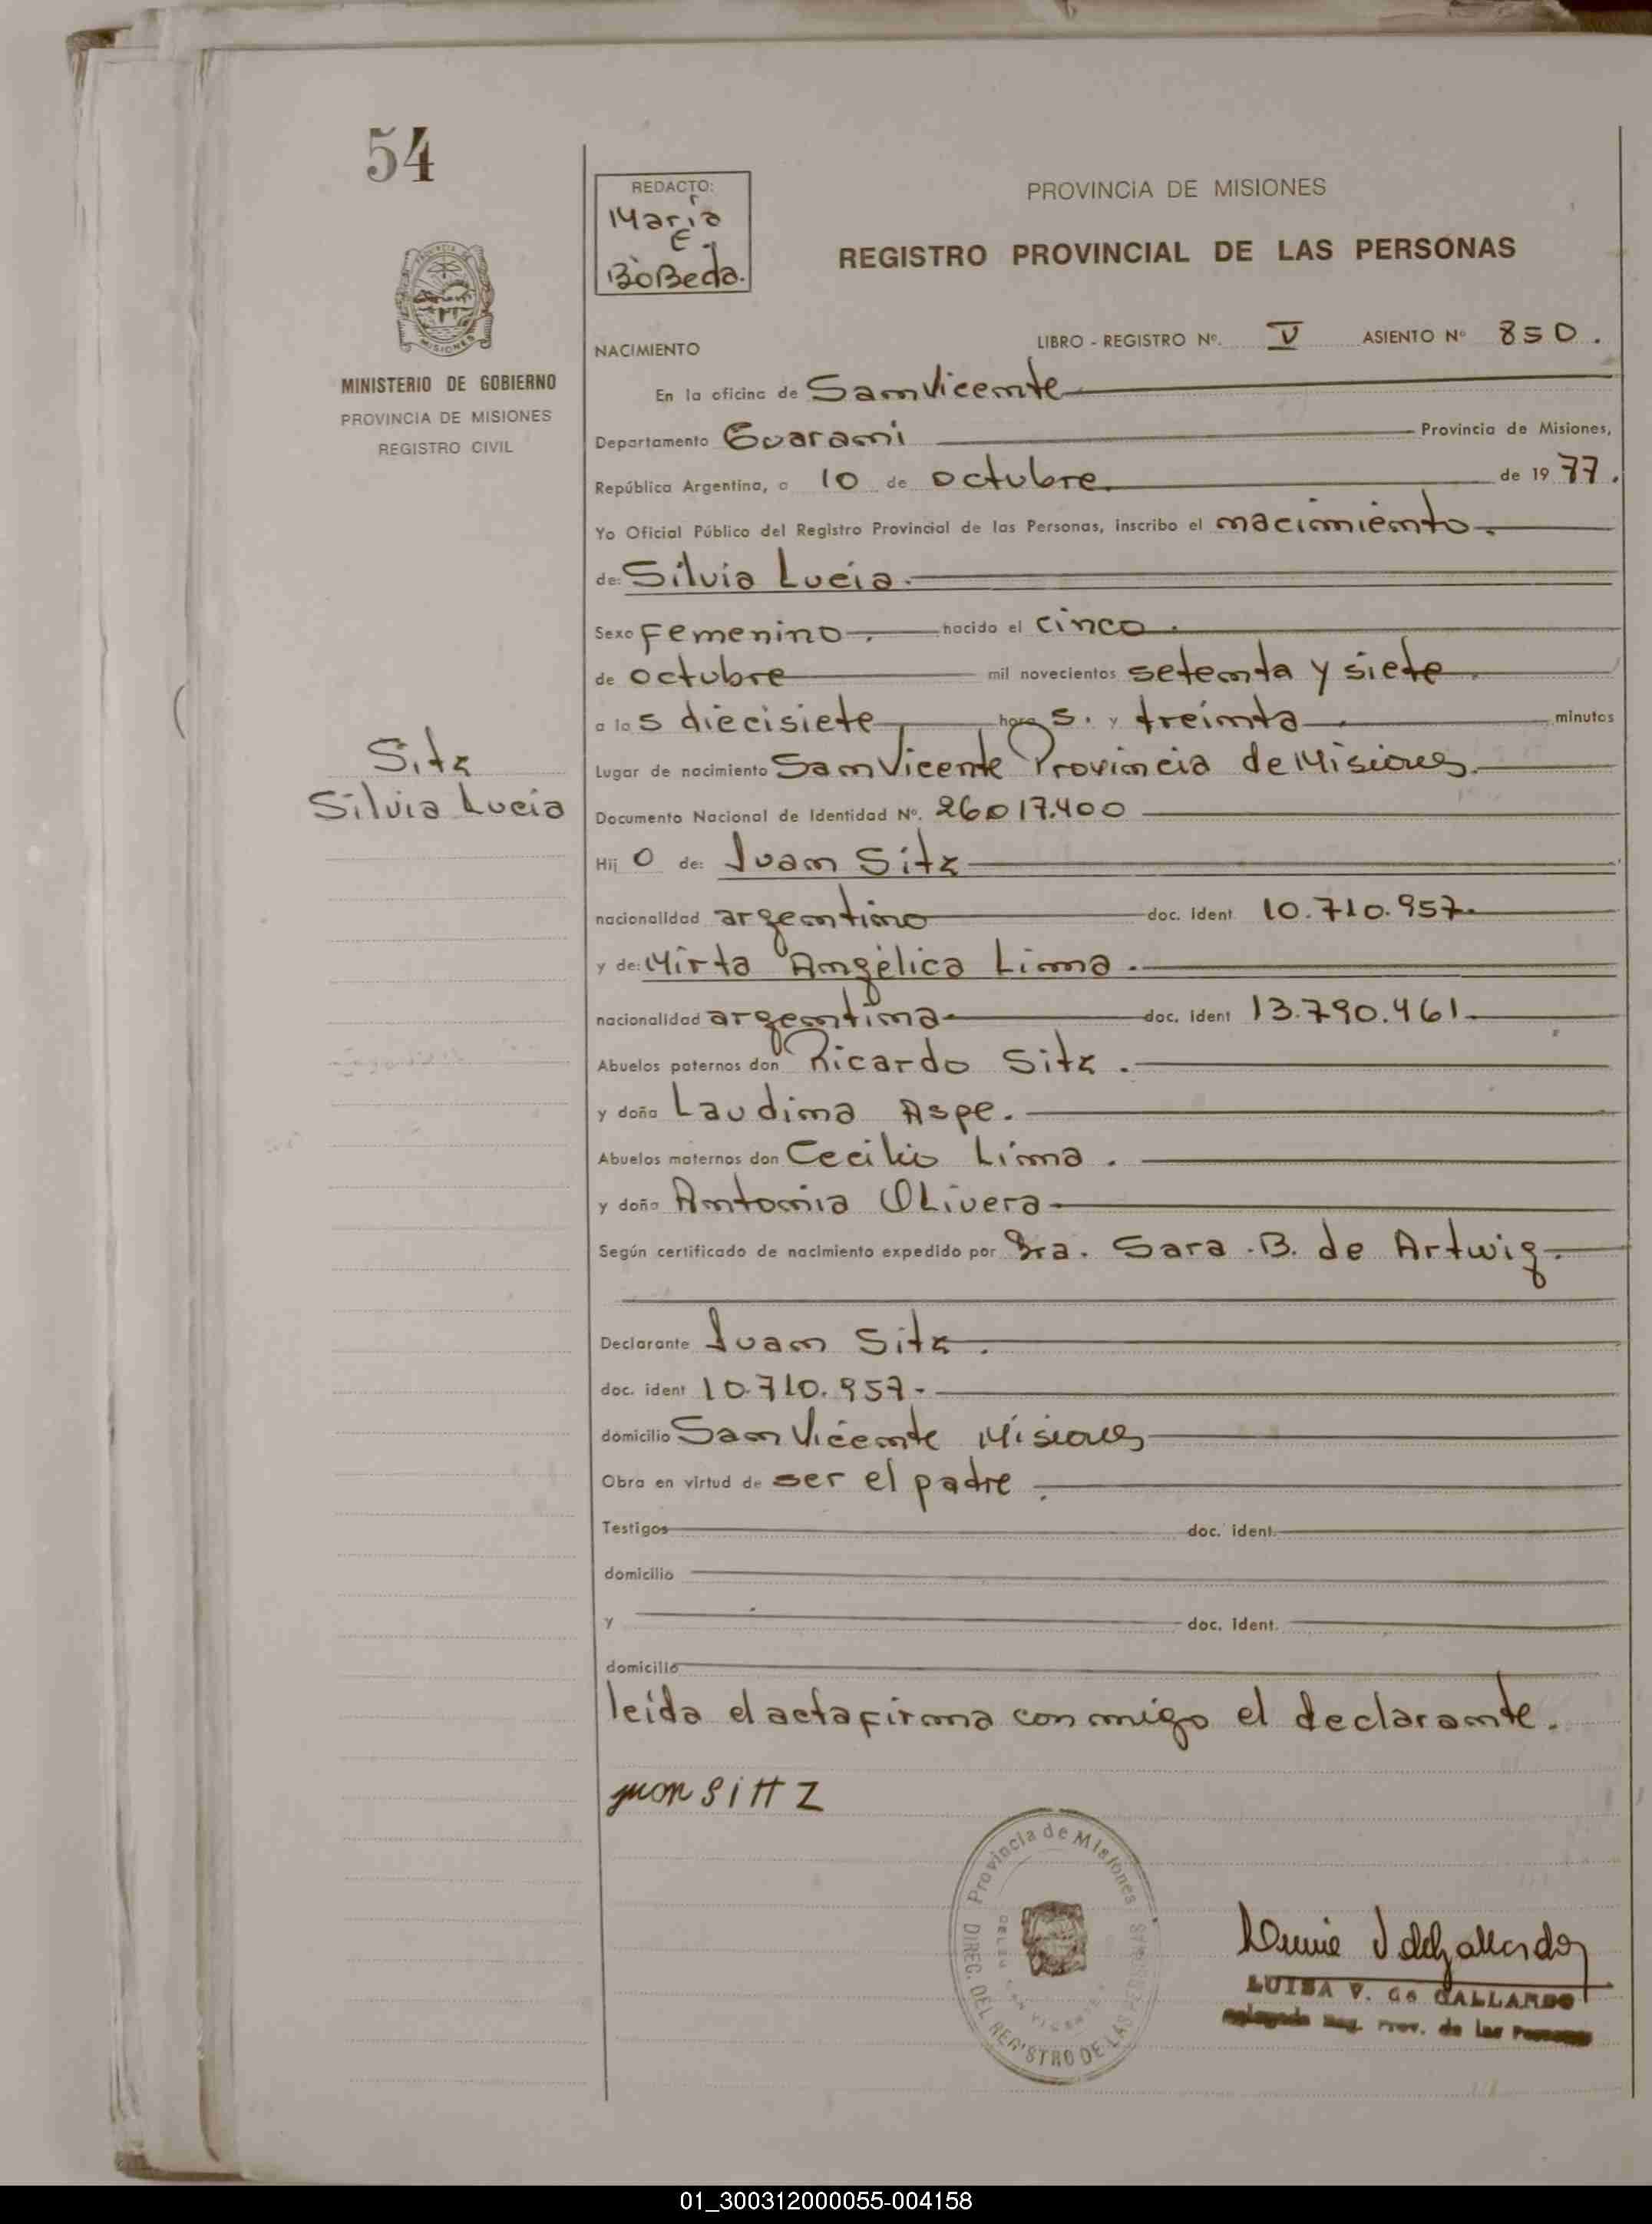 54
REDACTO:
Maria
E.
BoBeda.
PROVINCIA DE MISIONES
REGISTRO PROVINCIAL DE LAS PERSONAS
MINISTERIO DE GOBIERNO
PROVINCIA DE MISIONES
REGISTRO CIVIL
NACIMIENTO LIBRO - REGISTRO Nº. V ASIENTO Nº 850.
En la oficina de San Vicente
Departamento Guarani Provincia de Misiones,
República Argentina, a 10 de octubre de 1977.
Yo Oficial Público del Registro Provincial de las Personas, inscribo el nacimiento.
de: Silvia Lucia.
Sexo Femenino. nacido el cinco.
de octubre mil novecientos setenta y siete.
a las diecisiete horas. y treinta. minutos
Sitz
Silvia Lucia
Lugar de nacimiento San Vicente Provincia de Misiones.
Documento Nacional de Identidad Nº. 26017.400
Hijo de: Juan Sitz
nacionalidad argentino doc. ident 10.710.957.
y de: Mirta Angélica Lima.
nacionalidad argentina doc. ident 13.790.461.
Abuelos paternos don Ricardo Sitz.
y doña Laudima Aspe.
Abuelos maternos don Cecilio Lima.
y doña Antonia Olivera
Según certificado de nacimiento expedido por Sra. Sara .B. de Artwig.
Declarante Juan Sitz.
doc. ident 10.710.957.
domicilio San Vicente Misiones
Obra en virtud de ser el padre.
Testigos doc. ident.
domicilio
y doc. ident.
domicilio
leída el acta firma conmigo el declarante.
juan Sittz
Provincia de Misiones
DIREC. DEL REGISTRO DE LAS PERSONAS
LUISA V. de GALLARDO
Reg. Prov. de las Personas
01_300312000055-004158